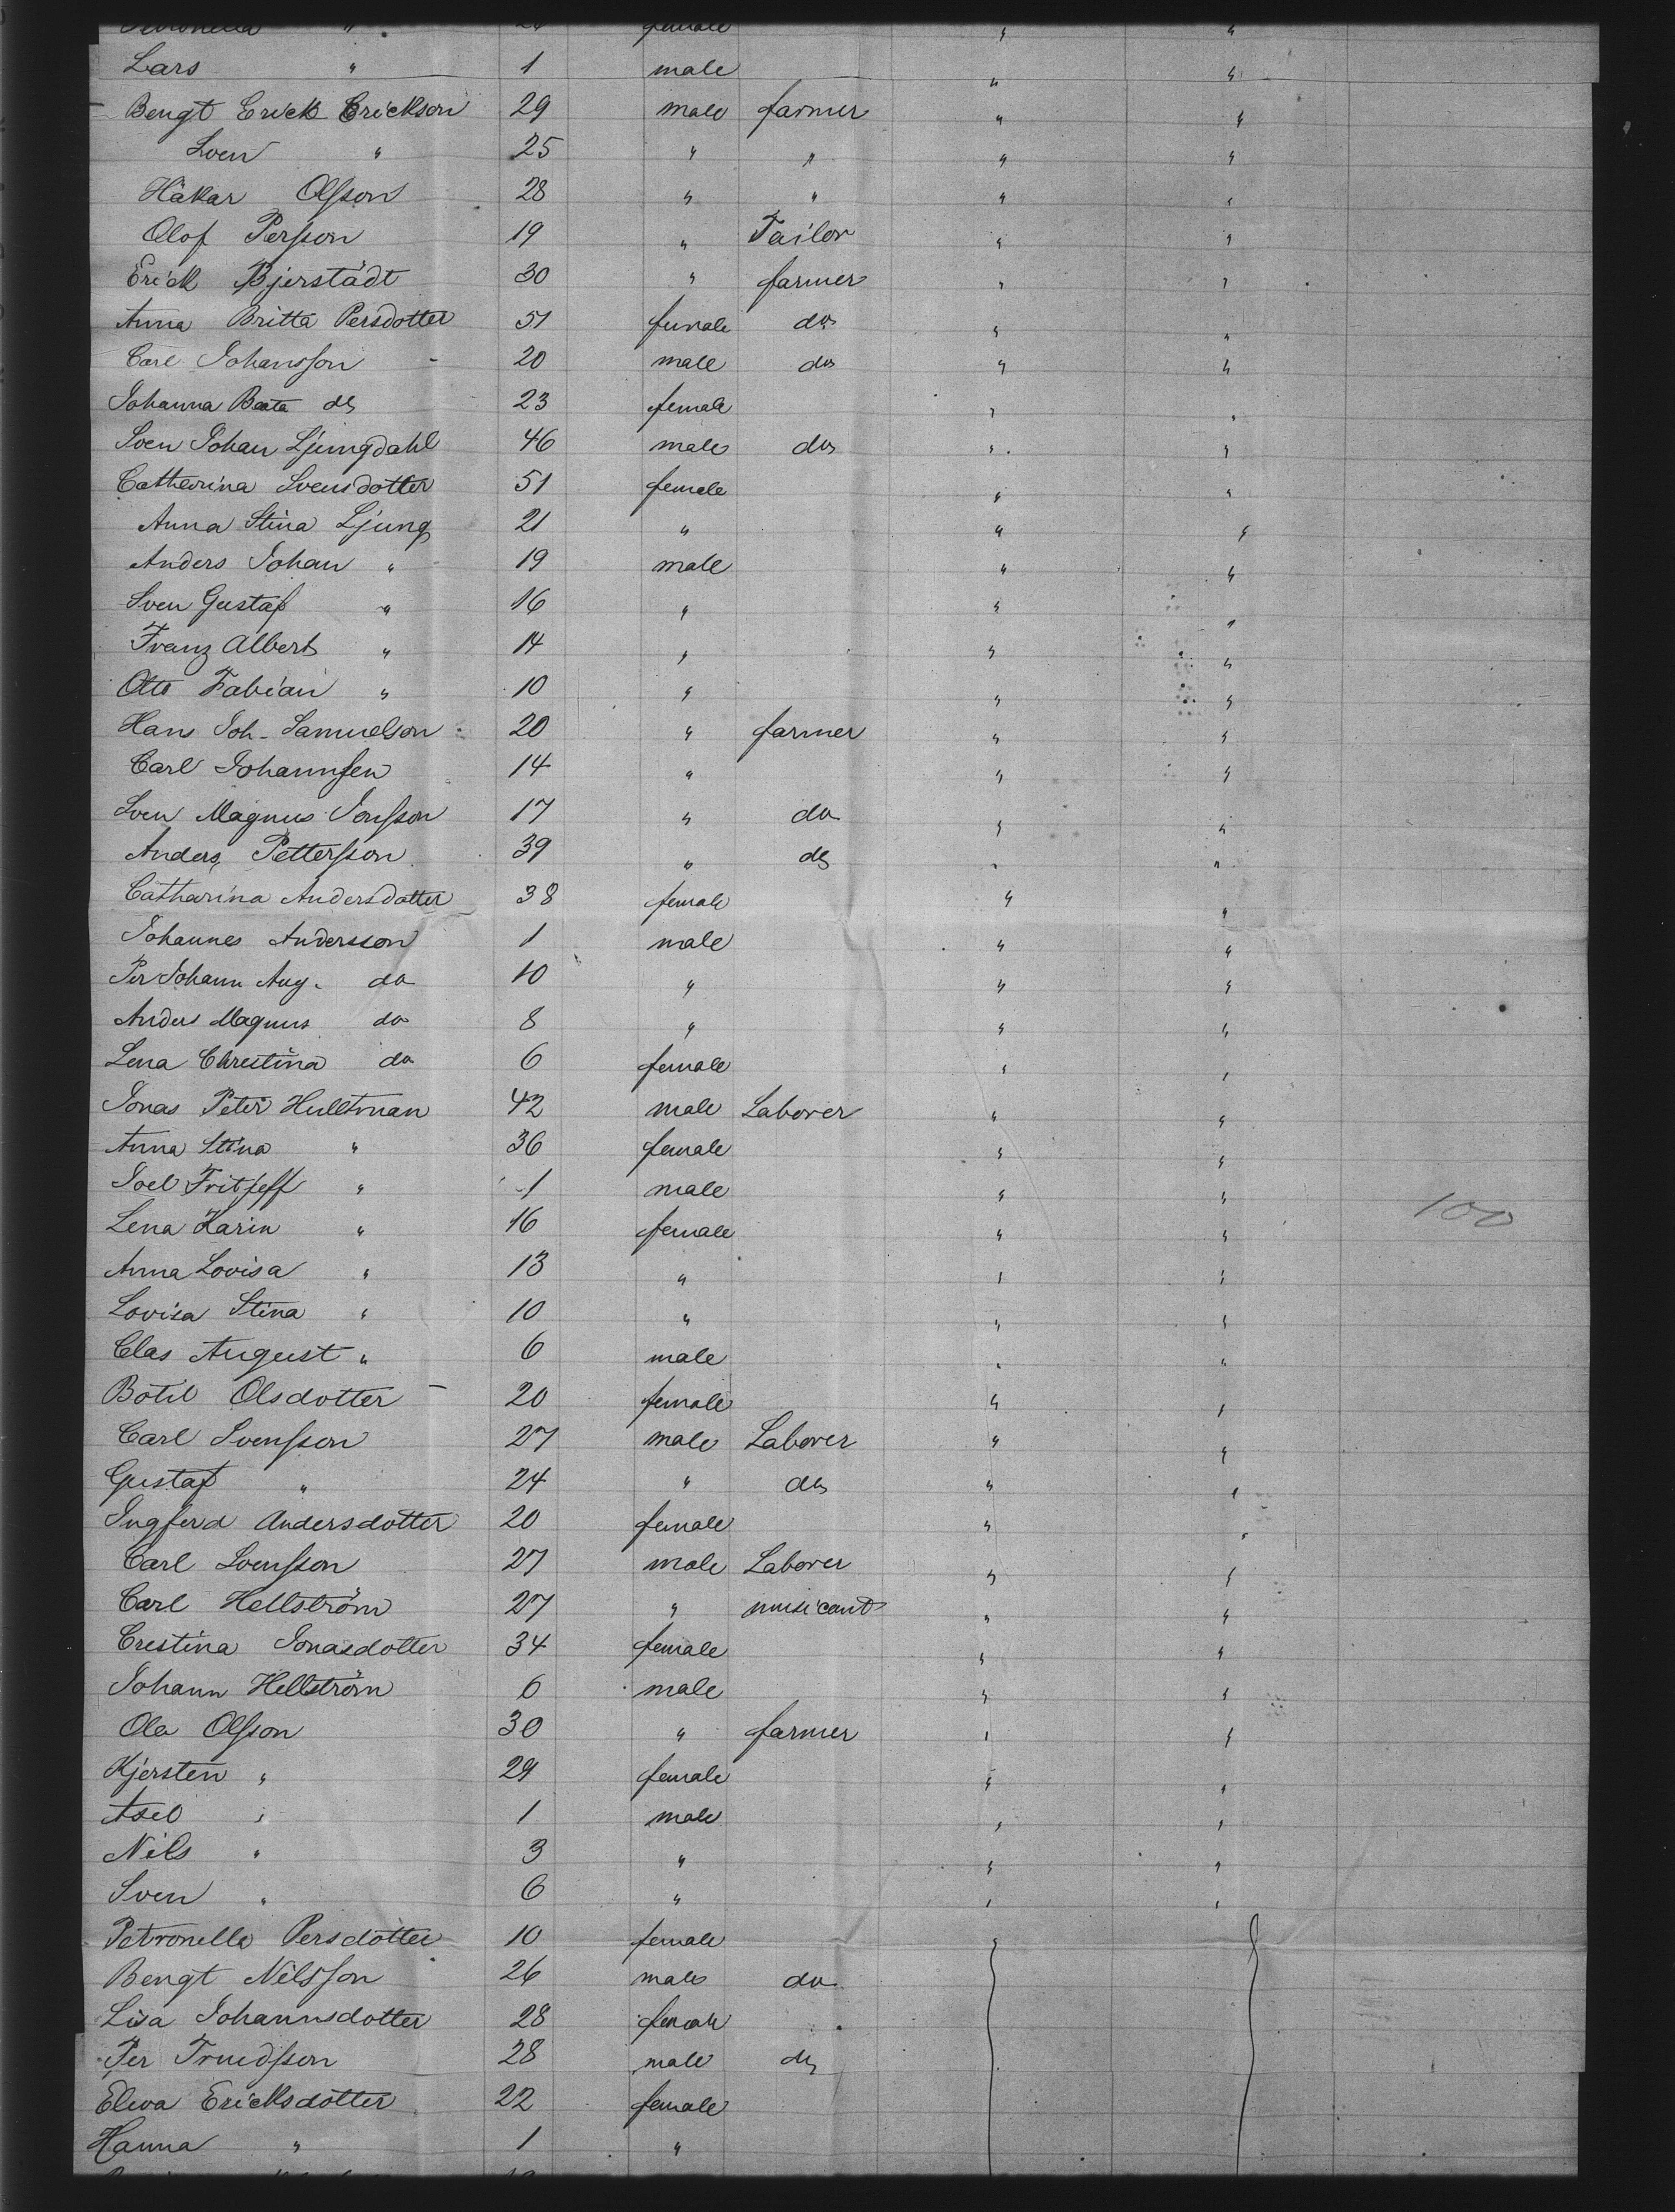 Petronella " female " "
Lars " 1 male " "
Bengt Erick Erickson 29 male farmer " "
Sven " 25 " " " "
Håkar Olsson 28 " " " "
Olof Persson 19 " Tailor " "
Erick Bjerstädt 30 " farmer " "
Anna Britta Persdotter 51 female do " "
Carl Johansson 20 male do " "
Johanna Beata do 23 female " "
Sven Johan Ljungdahl 46 male do " "
Catherina Svensdotter 51 female " "
Anna Stina Ljung 21 " " "
Anders Johan " 19 male " "
Sven Gustaf " 16 " " "
Franz Albert " 14 " " "
Otto Fabian " 10 " " "
Hans Joh. Samuelson 20 " farmer " "
Carl Johannsen 14 " " "
Sven Magnus Jonsson 17 " do " "
Anders Pettersson 39 " do " "
Catharina Andersdotter 38 female " "
Johannes Andersson 1 male " "
Per Johann Aug. do 10 " " "
Anders Magnus do 8 " " "
Lena Chrestina do 6 female " "
Jonas Peter Hulltman 42 male Laborer " "
Anna Stina " 36 female " "
Joel Fritjeff " 1 male " "
Lena Karin " 16 female " " 100
Anna Lovisa " 13 " " "
Lovisa Stina " 10 " " "
Clas August " 6 male " "
Botil Olsdotter 20 female " "
Carl Svensson 27 male Laborer " "
Gustaf " 24 " do " "
Ingferd Andersdotter 20 female " "
Carl Svensson 27 male Laborer " "
Carl Hellström 27 " musicant " "
Crestina Jonasdotter 34 female " "
Johann Hellström 6 male " "
Ola Olsson 30 " farmer " "
Kjersten " 29 female " "
Axel " 1 male " "
Nils " 3 " " "
Sven " 6 " " "
Petronella Persdotter 10 female "
Bengt Nilsson 26 male do
Lisa Johannsdotter 28 female
Per Truedsson 28 male do
Elwa Ericksdotter 22 female
Hanna " 1 "